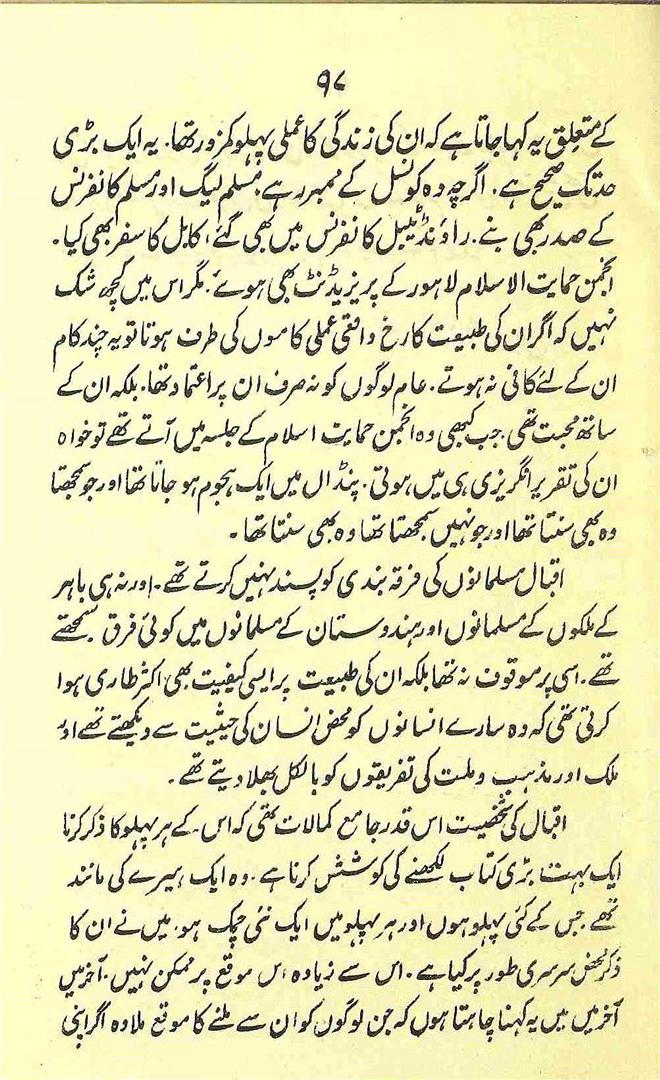 ۹۸
کے متعلق یہ کہا جاتا ہے کہ ان کی زندگی کا عملی پہلو کمزور تھا۔ یہ ایک بڑی
حد تک صحیح ہے۔ اگرچہ وہ کونسل کے ممبر رہے، مسلم لیگ اور مسلم کانفرنس
کے صدر بھی بنے۔ راؤنڈ ٹیبل کانفرنس میں بھی گئے، کابل کا سفر بھی کیا۔
انجمن حمایت الاسلام لاہور کے پریزیڈنٹ بھی ہوئے۔ مگر اس میں کچھ شک
نہیں کہ اگر ان کی طبیعت کا رخ واقعی عملی کاموں کی طرف ہوتا تو یہ چند کام
ان کے لئے کافی نہ ہوتے۔ عام لوگوں کو نہ صرف ان پر اعتماد تھا۔ بلکہ ان کے
ساتھ محبت تھی۔ جب کبھی وہ انجمن حمایت اسلام کے جلسہ میں آتے تھے تو خواہ
ان کی تقریر انگریزی ہی میں ہوتی۔ پنڈال میں ایک ہجوم ہو جاتا تھا اور جو سمجھتا
وہ بھی سنتا تھا اور جو نہیں سمجھتا تھا وہ بھی سنتا تھا۔
اقبال مسلمانوں کی فرقہ بندی کو پسند نہیں کرتے تھے۔ اور نہ ہی باہر
کے ملکوں کے مسلمانوں اور ہندوستان کے مسلمانوں میں کوئی فرق سمجھتے
تھے۔ اسی پر موقوف نہ تھا بلکہ ان کی طبیعت پر ایسی کیفیت بھی اکثر طاری ہوا
کرتی تھی کہ وہ سارے انسانوں کو محض انسان کی حیثیت سے دیکھتے تھے اور
ملک اور مذہب و ملت کی تفریقوں کو بالکل بھلا دیتے تھے۔
اقبال کی شخصیت اس قدر جامع کمالات تھی کہ اس کے ہر پہلو کا ذکر کرنا
ایک بہت بڑی کتاب لکھنے کی کوشش کرنا ہے۔ وہ ایک ہیرے کی مانند
تھے جس کے کئی پہلو ہوں اور ہر پہلو میں ایک نئی چمک ہو۔ میں نے ان کا
ذکر محض سرسری طور پر کیا ہے۔ اس سے زیادہ اس موقع پر ممکن نہیں۔ آخر میں
آخر میں میں یہ کہنا چاہتا ہوں کہ جن لوگوں کو ان سے ملنے کا موقع ملا وہ اگر اپنی